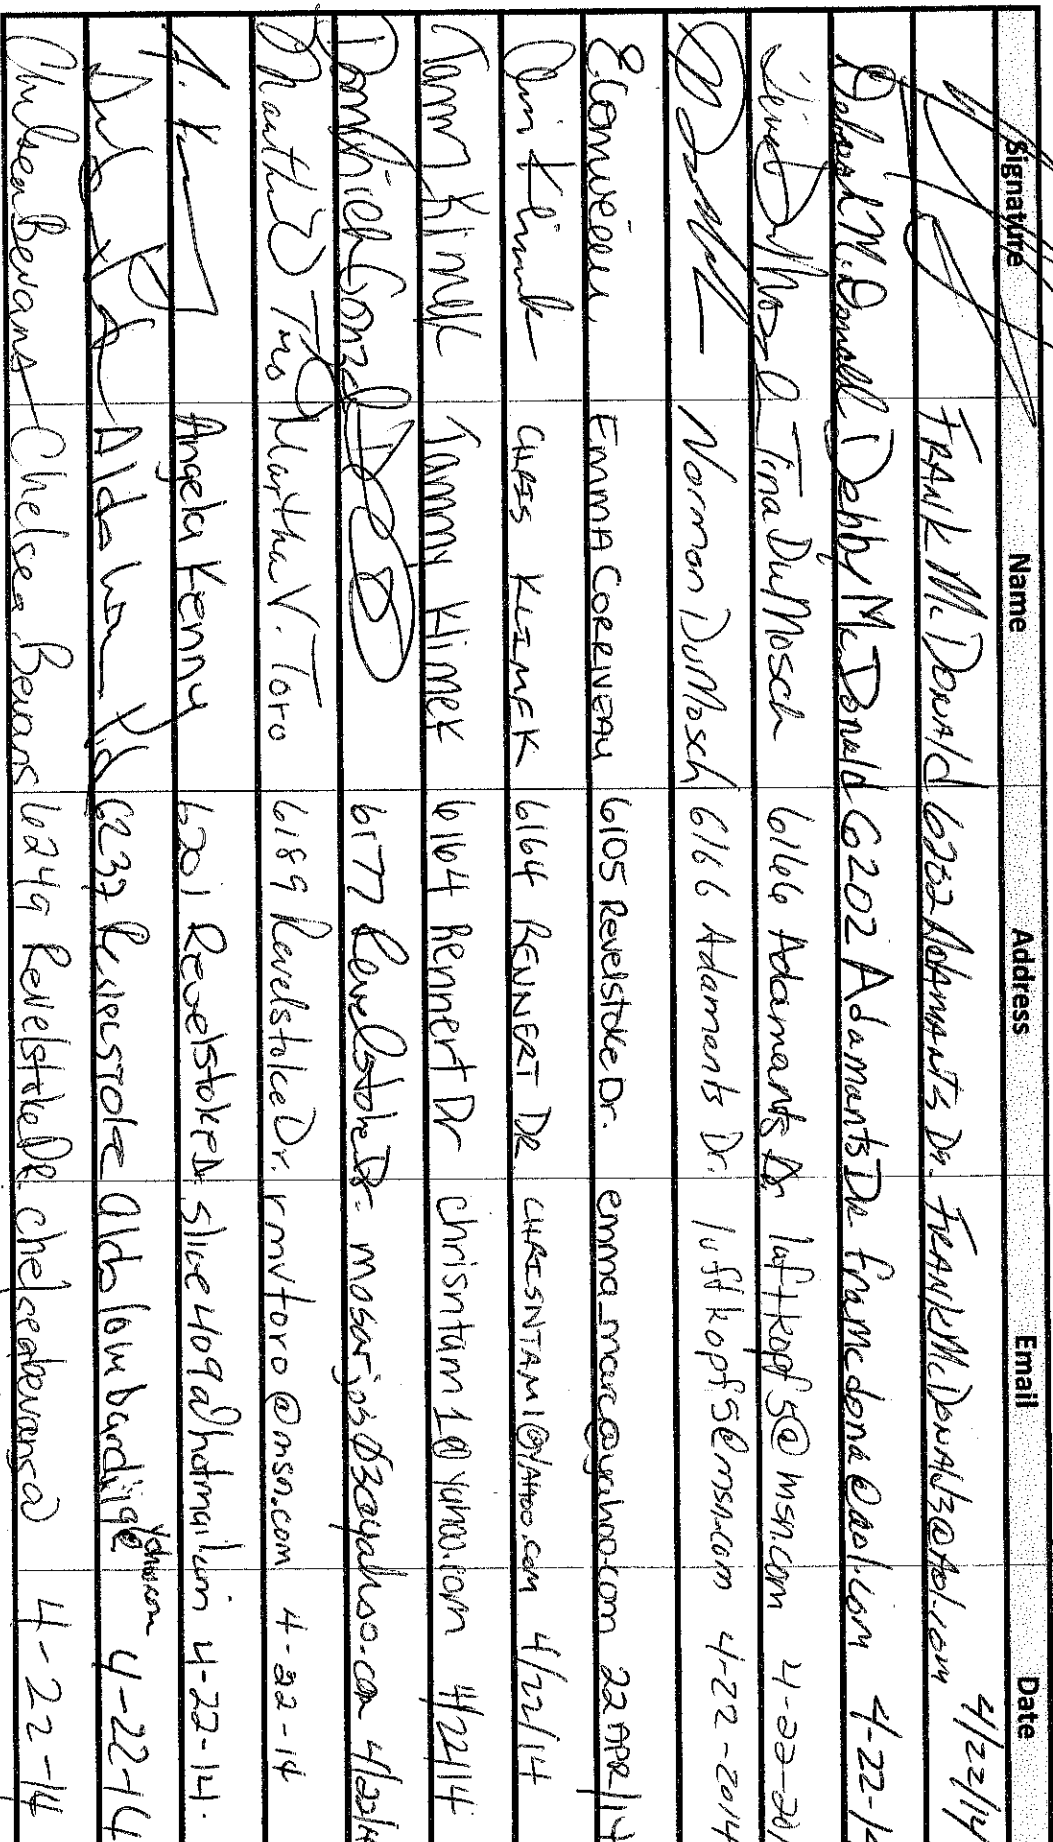 Signature Name Address Email Date
Frank McDonald 6202 Adamants Dr. FrankMcDonald3@aol.com 4/22/14
Debby McDonald 6202 Adamants Dr framcdona@aol.com 4-22-1
Tina DuMosch 6166 Adamants Dr luftkopf5@msn.com 4-22-201
Norman DuMosch 6166 Adaments Dr. luftkopf5@msn.com 4-22-2014
E. Corriveau Emma Corriveau 6105 Revelstoke Dr. emma_marc@yahoo.com 22 APR/14
Chris Klimek CHRIS KLIMEK 6164 RENNERT DR. CHRISNTAM1@YAHOO.com 4/22/14
Tammy Klimek Tammy Klimek 6164 Rennert Dr chrisntam1@yahoo.com 4/22/14
6177 Revelstoke Dr. 4/22/14
Martha V. Toro 6189 Revelstoke Dr. rmvtoro@msn.com 4-22-14
A. Angela Kenny 6201 Revelstoke Dr. slice409@hotmail.com 4-22-14.
Aldo 6237 Revelstoke aldolombardi@ yahoo.com 4-22-14
Chelsea Bevans Chelsea Bevans 6249 Revelstoke DR. chelseabevans@ 4-22-14